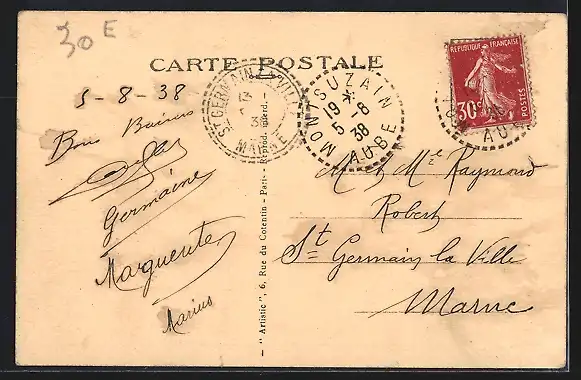 30 E
CARTE POSTALE
5-8-38
Bons Baisers
Germaine
Marguerite
Marius
"Artistic", 6, Rue du Cotentin - Paris - Reprod. interd. -
ST GERMAIN-LA-VILLE
MARNE
MONTSUZAIN
19 *
5 - 8
38
AUBE
RÉPUBLIQUE FRANÇAISE
30c
POSTES
AUBE
M. et Me Raymond
Robert
St Germain la Ville
Marne